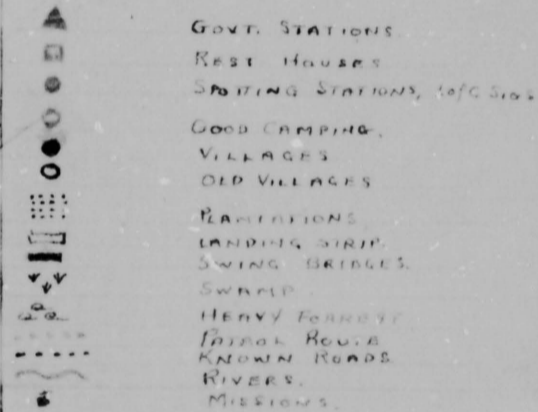 GOVT. STATIONS.
REST HOUSES
SPOTTING STATIONS,
GOOD CAMPING.
VILLAGES
OLD VILLAGES
PLANTATIONS.
LANDING STRIP.
SWING BRIDGES.
SWAMP.
HEAVY
PATROL ROUTE
KNOWN ROADS
RIVERS.
MISSIONS.